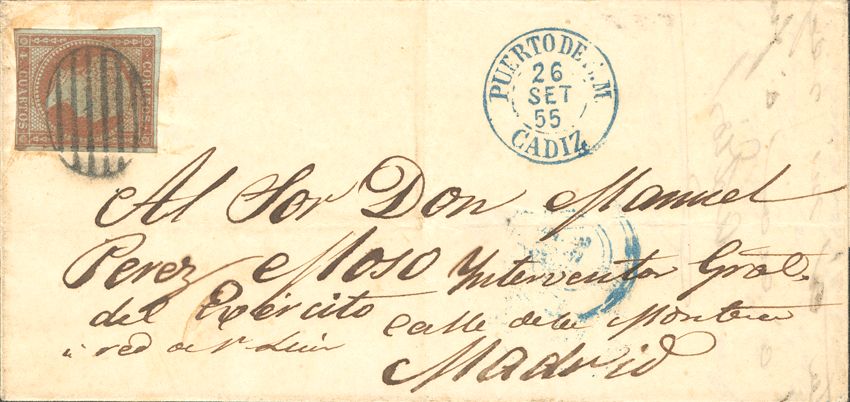 CORREOS
4 CUARTOS
PUERTO DE S. M
26
SET
55
CADIZ
Al Sor Don Manuel
Perez Moso Interventor Gral.
del Egército Calle de la Montera
ú red de Sn Luis
Madrid